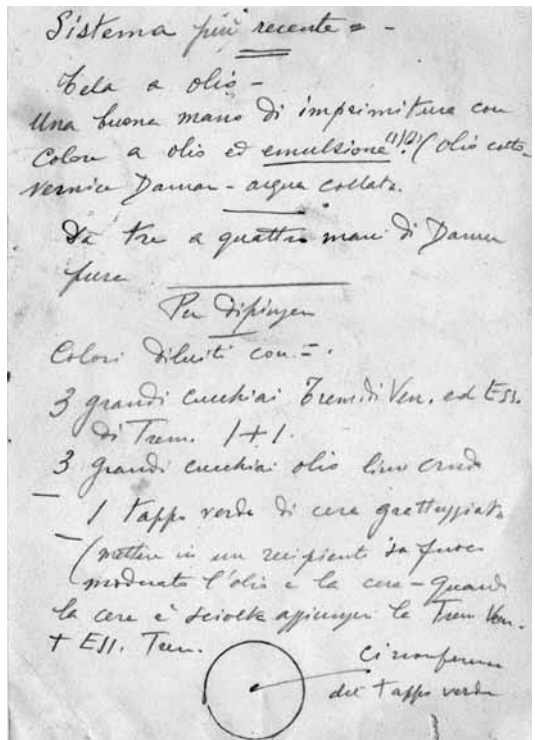 Sistema più recente = -
Tela a olio -
Una buona mano di imprimitura con
Colore a olio ed emulsione (1)(2) (olio cotto -
vernice Damar - acqua collata.
Da tre a quattro mani di Damar
pura
Per dipingere
Colori diluiti con = .
3 grandi cucchiai Trem. di Ven. ed Ess.
di Trem. 1+1.
3 grandi cucchiai olio lino crudo
1 tappo verde di cera grattuggiata
(mettere in un recipiente su fuoco
moderato l'olio e la cera - quando
la cera è sciolta aggiungere la Trem Ven.
+ Ess. Trem.
Circonferenza
del tappo verde